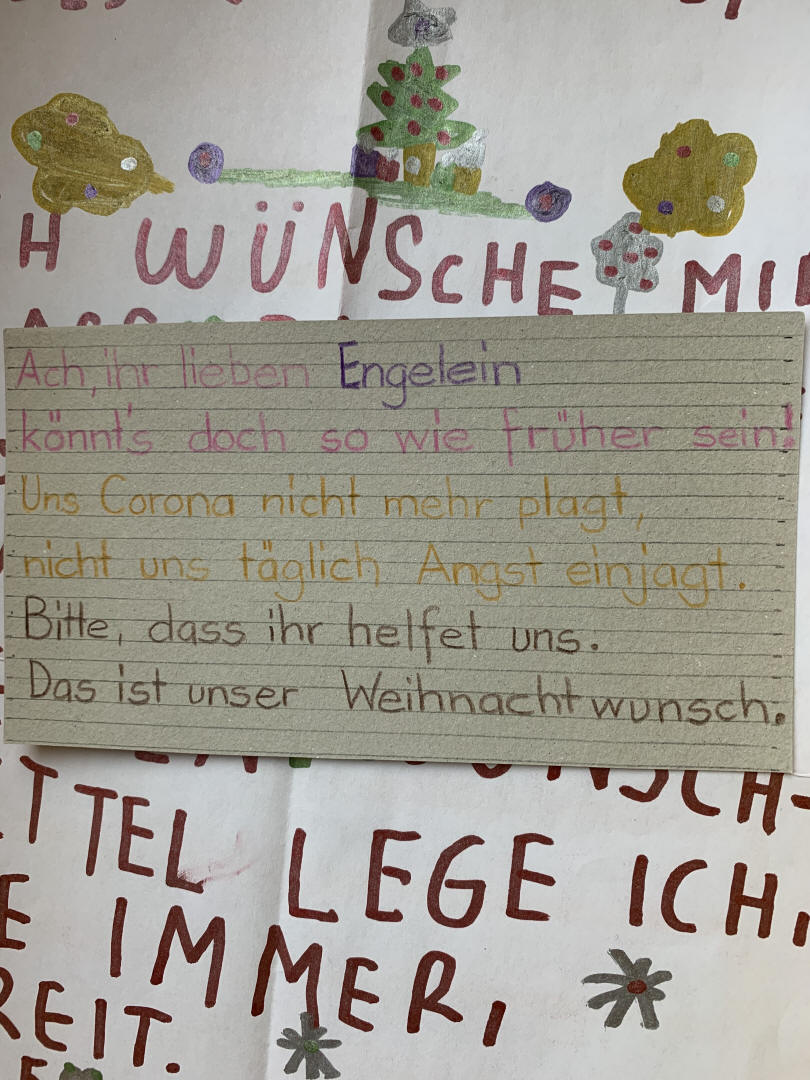 H WÜNSCHE MI
Ach, ihr lieben Engelein
könnt's doch so wie früher sein!
Uns Corona nicht mehr plagt,
nicht uns täglich Angst einjagt.
Bitte, dass ihr helfet uns.
Das ist unser Weihnachtwunsch.
TTEL LEGE ICH,
E IMMER,
REIT.